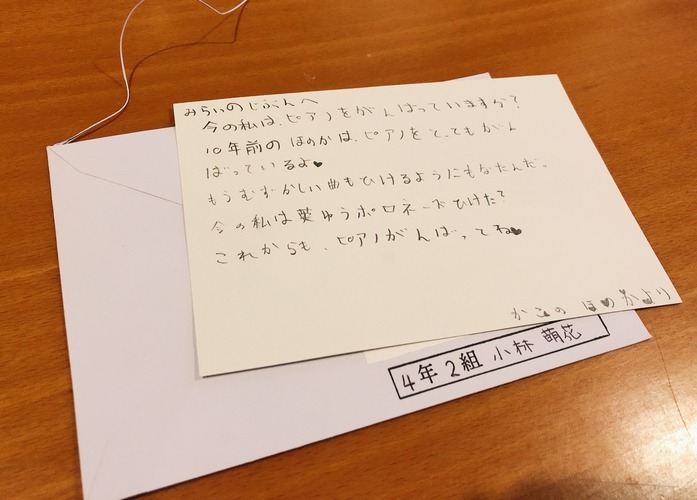 みらいのじぶんへ
今の私は、ピアノをがんばっていますか？
10年前のほのかは、ピアノを、とってもがん
ばっているよ♥
もうむずかしい曲もひけるようにもなたんだ。
今の私は英ゆうポロネーズひけた？
これからも、ピアノがんばってね♥
かこの ほのかより
4年2組 小林 萌花